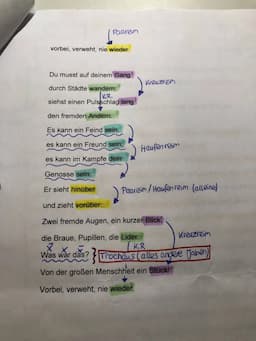 Paarreim
vorbei, verweht, nie wieder.
Du musst auf deinem Gang
durch Städte wandern; Kreuzreim
K.R.
siehst einen Pulsschlag lang
den fremden Andern.
Es kann ein Feind sein,
es kann ein Freund sein,
Haufenreim
es kann im Kampfe dein
Genosse sein.
Er sieht hinüber Paarreim / Haufenreim (alleine)
und zieht vorüber...
Zwei fremde Augen, ein kurzer Blick,
die Braue, Pupillen, die Lider. Kreuzreim
K.R
x x x
Was war das? } Trochäus (alles andere Jamben)
Von der großen Menschheit ein Stück!
Vorbei, verweht, nie wieder.